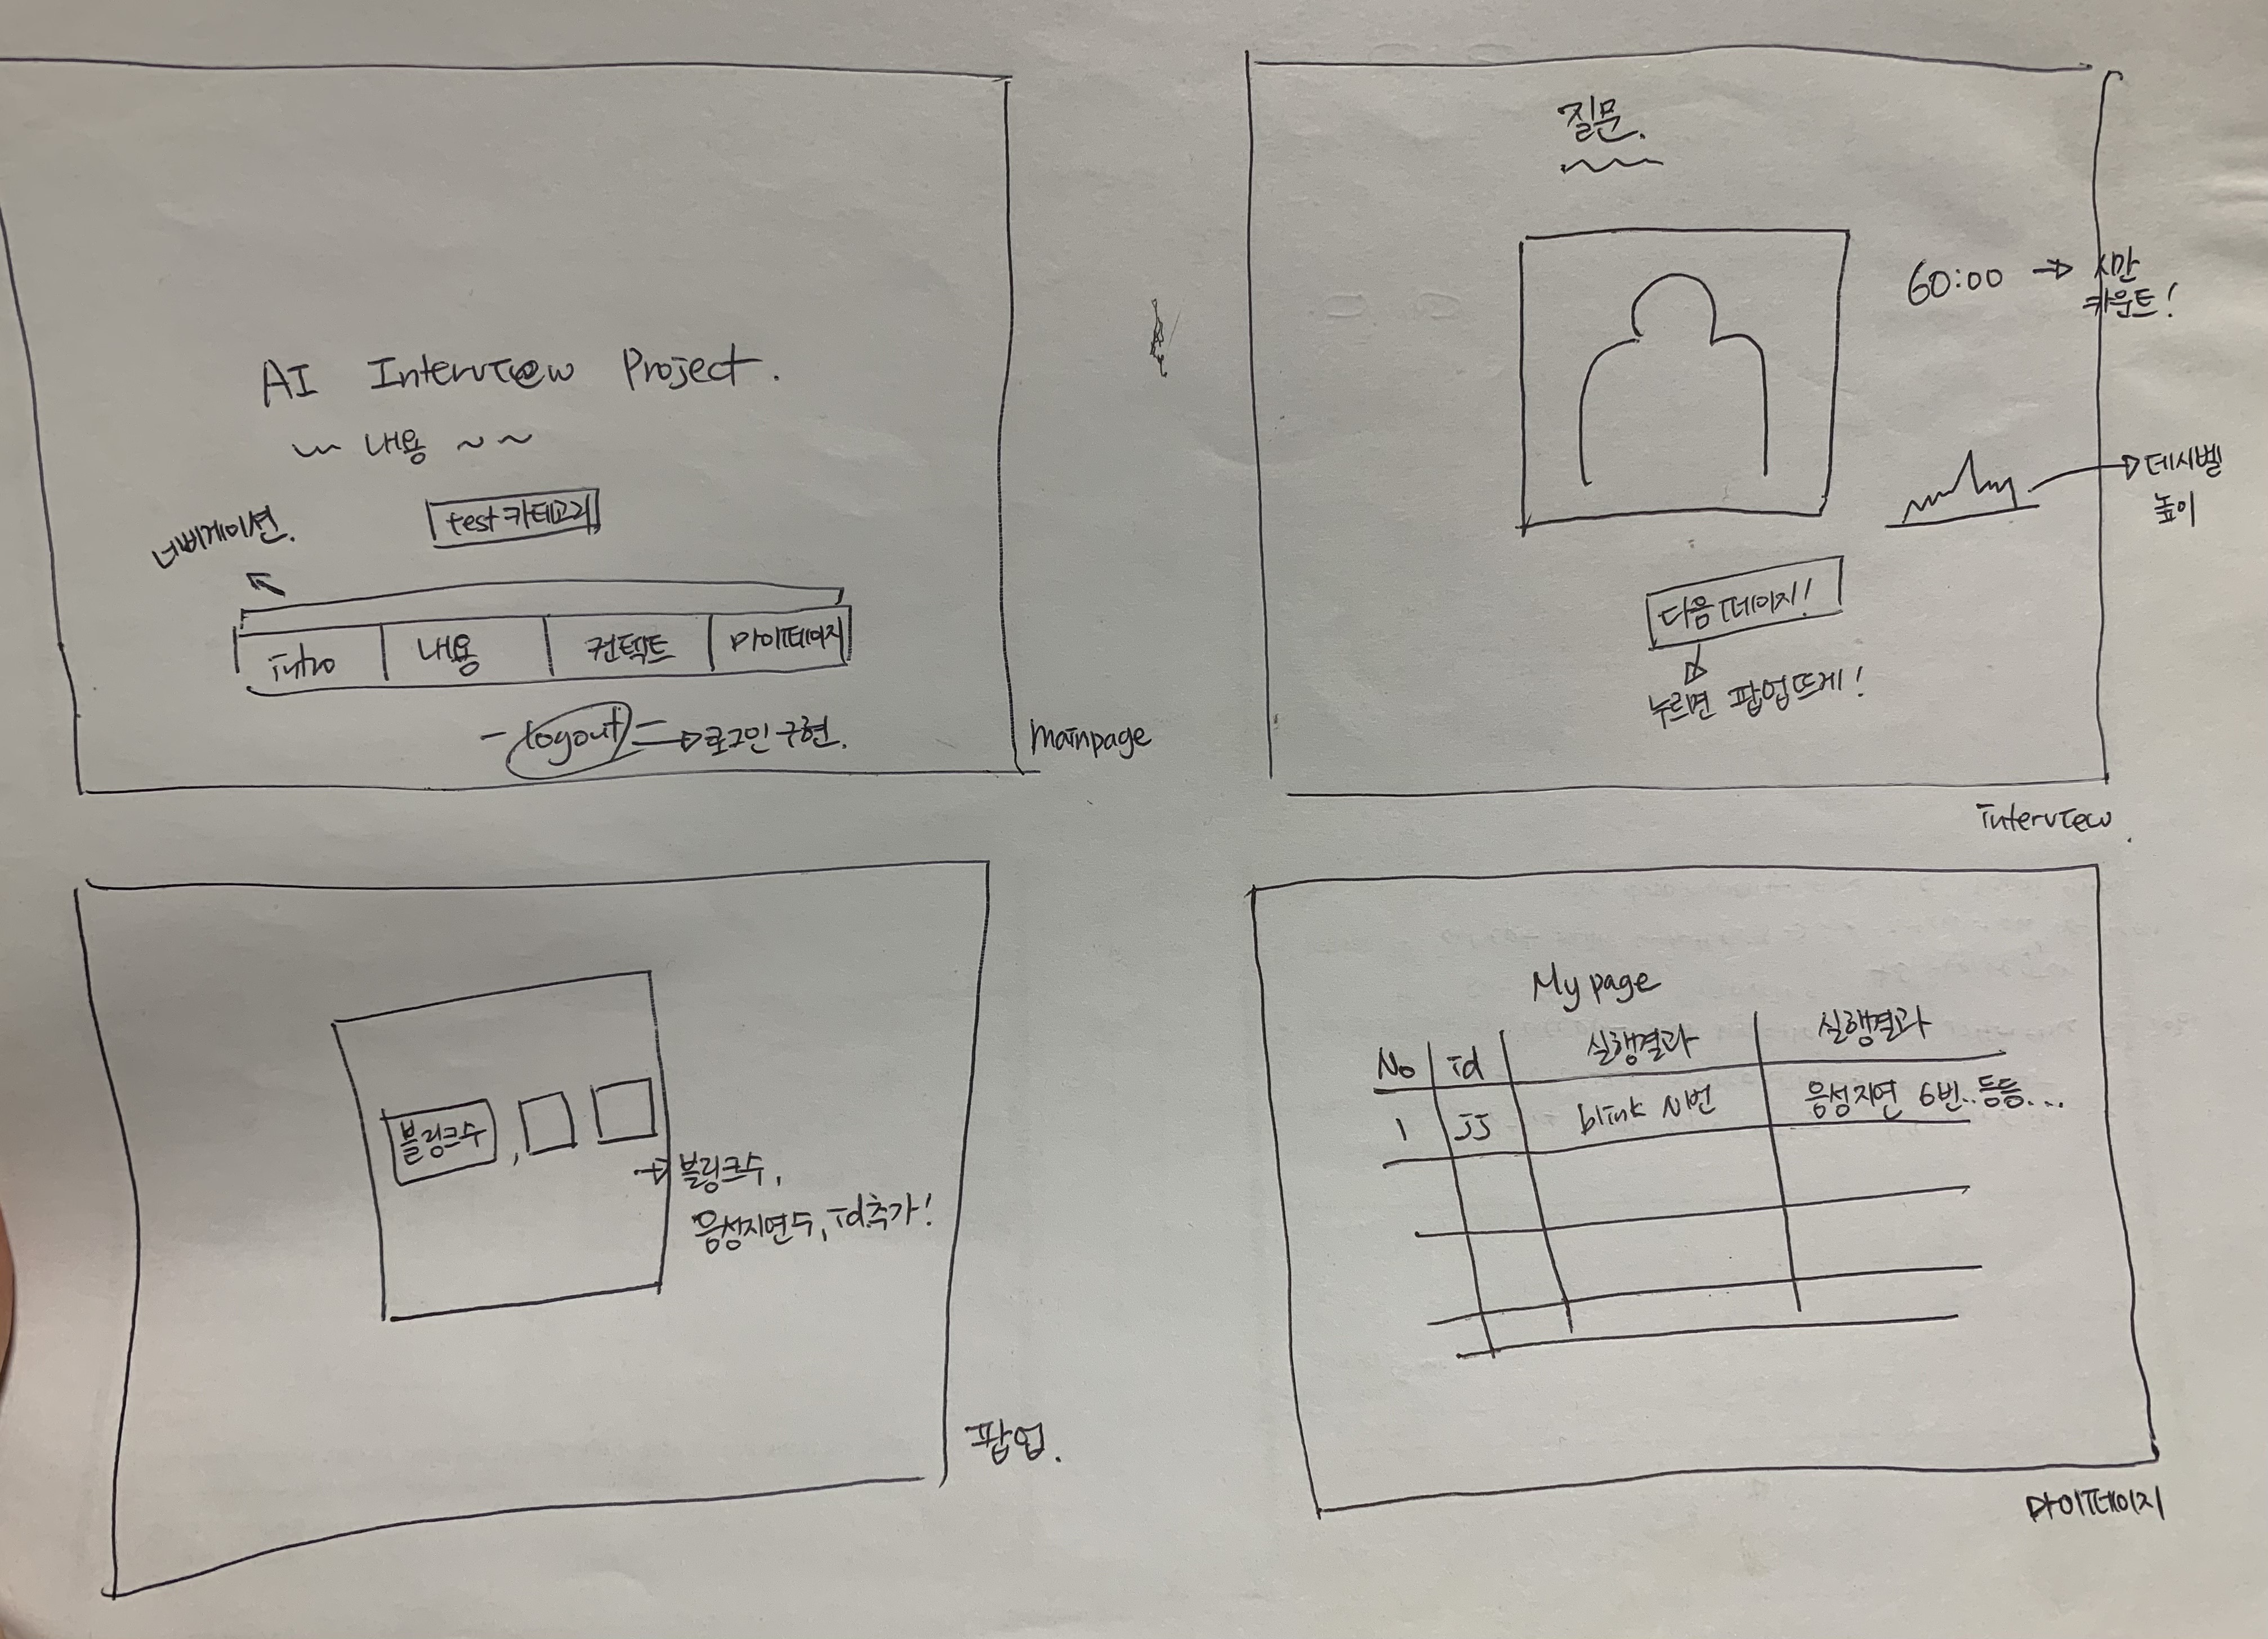 AI Interview Project.
~ 내용 ~ ~
test 카테고리
네비게이션.
intro 내용 컨텍트 마이페이지
- logout = → 로그인 구현.
mainpage
질문.
60:00 →
카운트!
→ 데시벨
높이
다음페이지!
누르면 팝업뜨게!
interview
블링크수 ,
→ 블링크수,
음성지연수, id추가!
팝업.
My page
No id 실행결과 실행결과
1 JJ blink N번 음성지연 6번..등등...
마이페이지